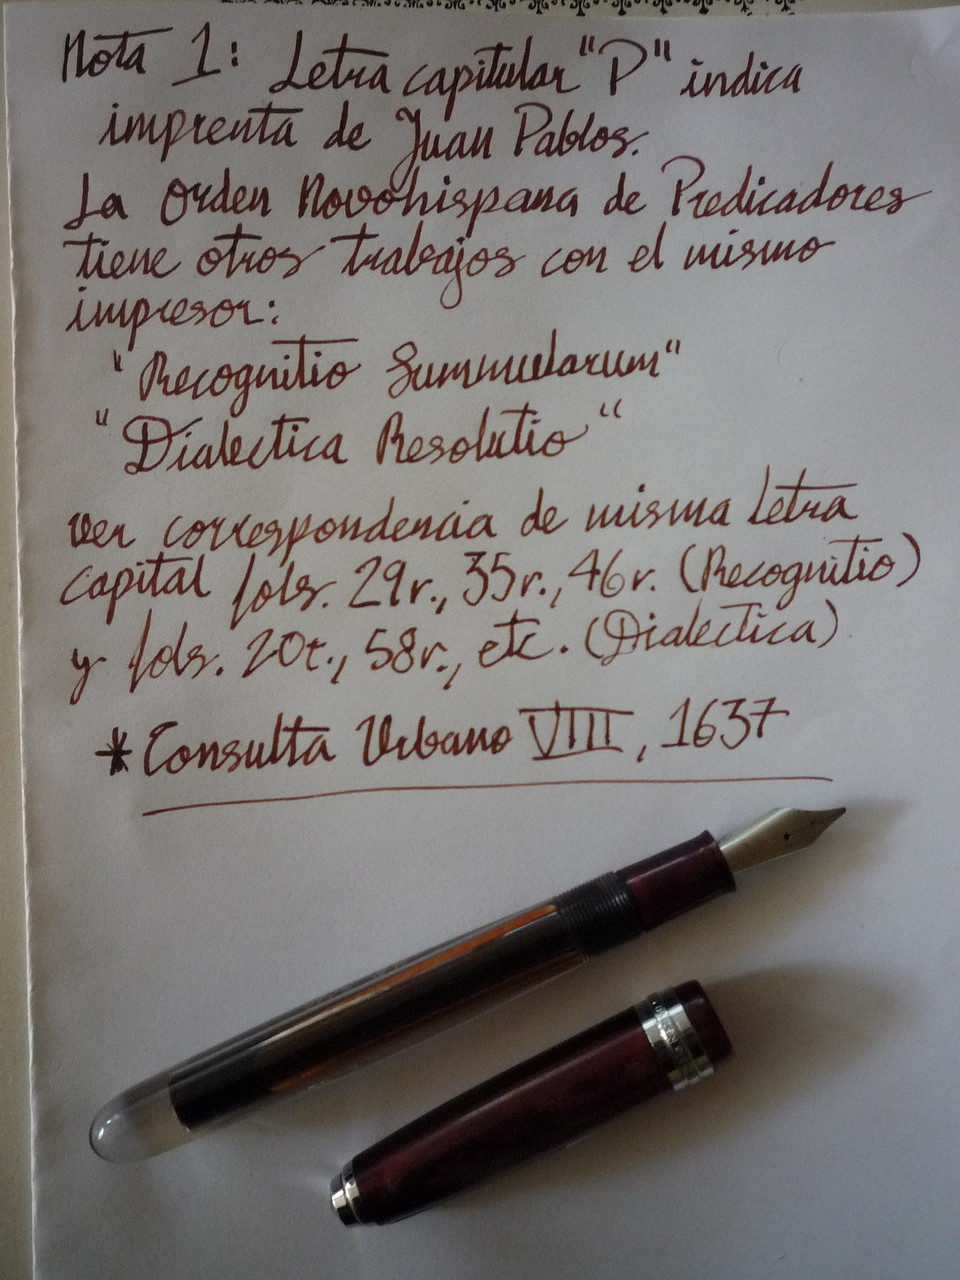 Nota 1: Letra capitular "P" indica
imprenta de Juan Pablos.
La Orden Novohispana de Predicadores
tiene otros trabajos con el mismo
impresor:
"Recognitio Summularum"
"Dialectica Resolutio"
Ver correspondencia de misma Letra
capital fols. 29r., 35r., 46r. (Recognitio)
y fols. 20t., 58r., etc. (Dialectica)
* Consulta Urbano VIII, 1637